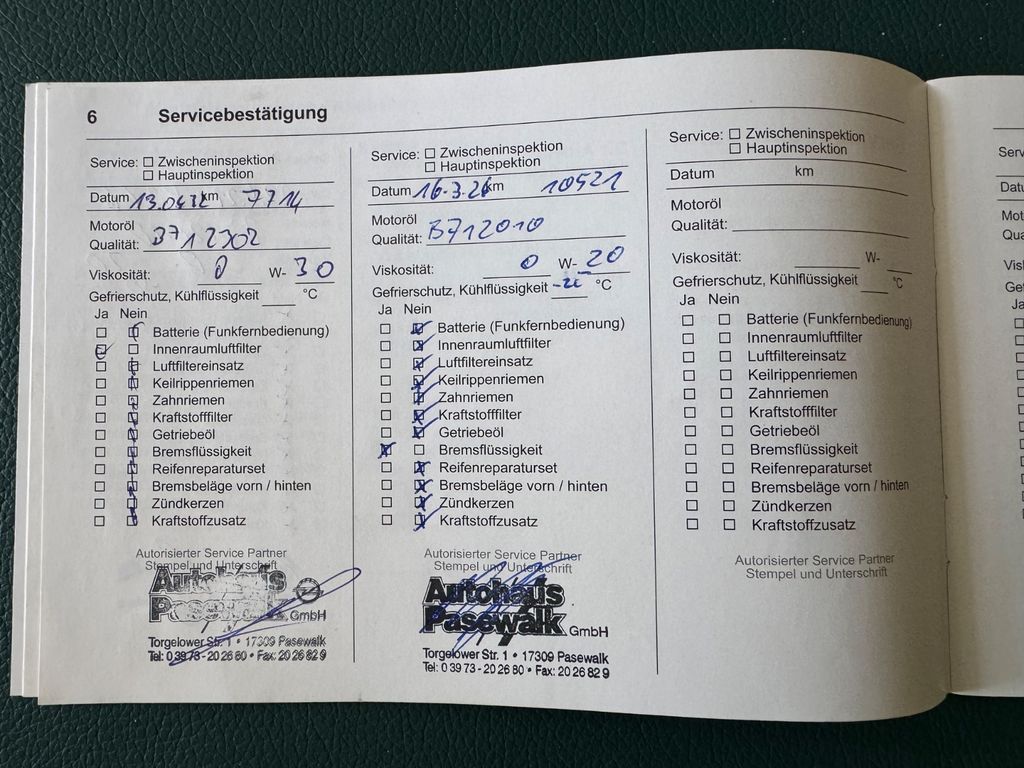 6 Servicebestätigung
Service: Zwischeninspektion
Hauptinspektion
Datum km 7714
Motoröl
Qualität:
Viskosität: 0 W- 30
Gefrierschutz, Kühlflüssigkeit °C
Ja Nein
Batterie (Funkfernbedienung)
Innenraumluftfilter
Luftfiltereinsatz
Keilrippenriemen
Zahnriemen
Kraftstofffilter
Getriebeöl
Bremsflüssigkeit
Reifenreparaturset
Bremsbeläge vorn / hinten
Zündkerzen
Kraftstoffzusatz
Autorisierter Service Partner
Stempel und Unterschrift
Autohaus
Pasewalk GmbH
Torgelower Str. 1 • 17309 Pasewalk
Tel: 0 39 73 - 20 26 80 • Fax: 20 26 82 9
Service: Zwischeninspektion
Hauptinspektion
Datum km 10521
Motoröl
Qualität: B712010
Viskosität: 0 W- 20
Gefrierschutz, Kühlflüssigkeit °C
Ja Nein
Batterie (Funkfernbedienung)
Innenraumluftfilter
Luftfiltereinsatz
Keilrippenriemen
Zahnriemen
Kraftstofffilter
Getriebeöl
Bremsflüssigkeit
Reifenreparaturset
Bremsbeläge vorn / hinten
Zündkerzen
Kraftstoffzusatz
Autorisierter Service Partner
Stempel und Unterschrift
Autohaus
Pasewalk GmbH
Torgelower Str. 1 • 17309 Pasewalk
Tel: 0 39 73 - 20 26 80 • Fax: 20 26 82 9
Service: Zwischeninspektion
Hauptinspektion
Datum km
Motoröl
Qualität:
Viskosität: W-
Gefrierschutz, Kühlflüssigkeit °C
Ja Nein
Batterie (Funkfernbedienung)
Innenraumluftfilter
Luftfiltereinsatz
Keilrippenriemen
Zahnriemen
Kraftstofffilter
Getriebeöl
Bremsflüssigkeit
Reifenreparaturset
Bremsbeläge vorn / hinten
Zündkerzen
Kraftstoffzusatz
Autorisierter Service Partner
Stempel und Unterschrift